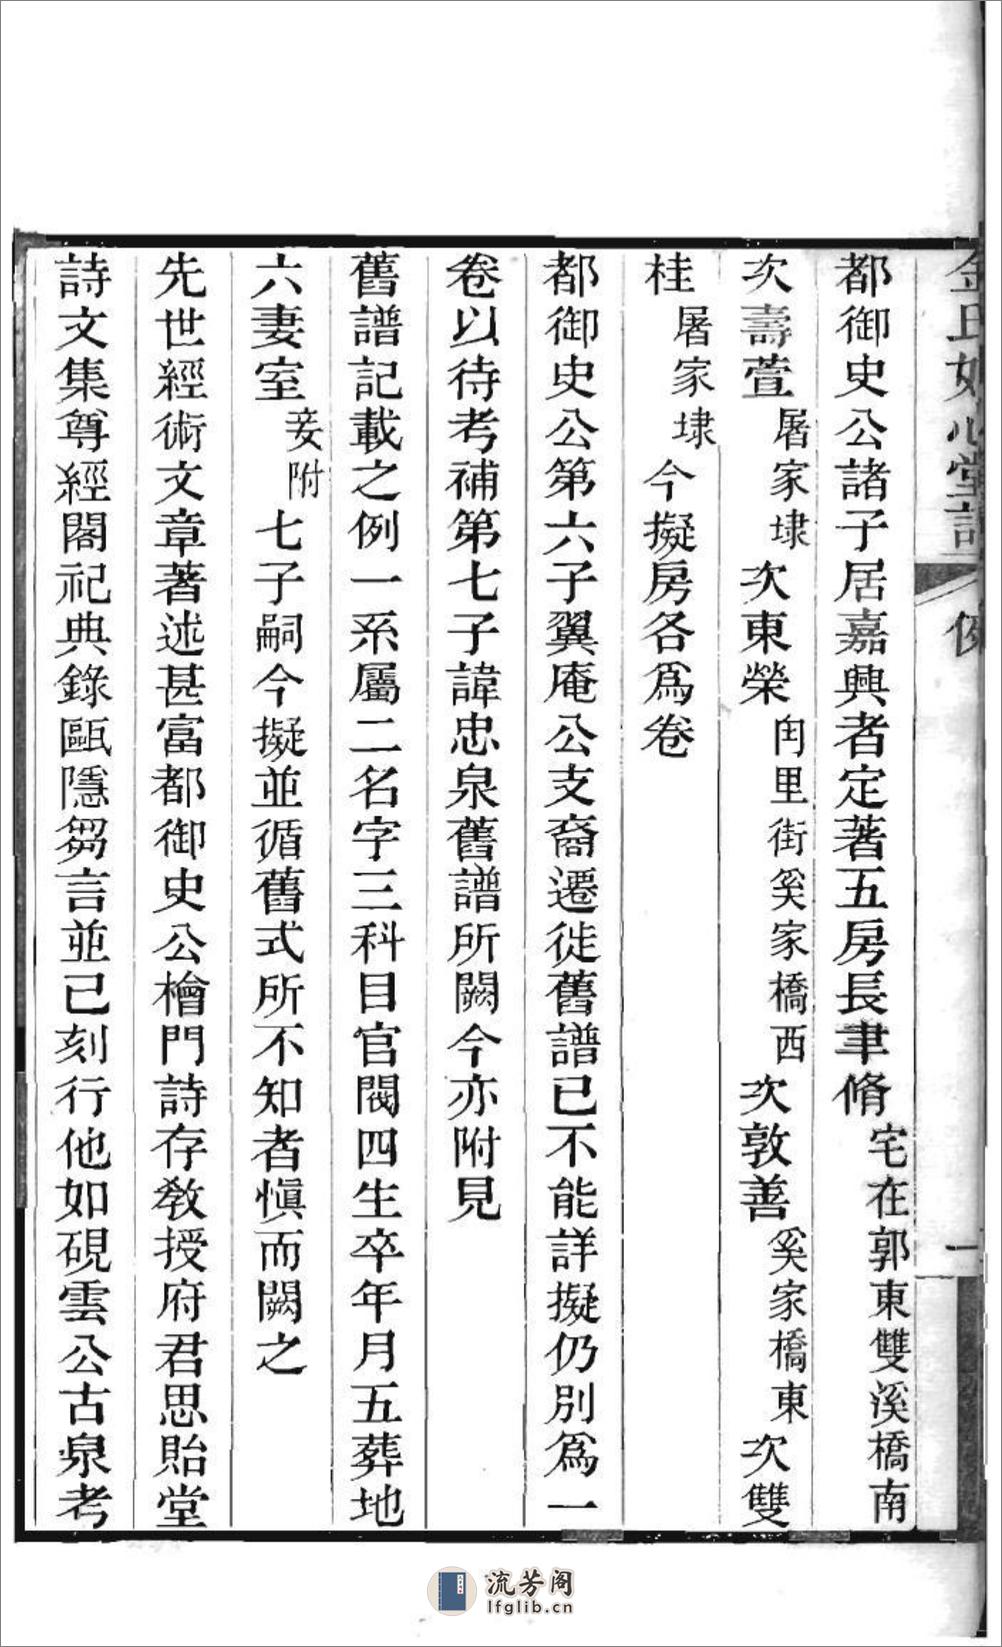 金氏如心堂譜
例
一
都御史公諸子居嘉興者定著五房長聿脩宅在郭東雙溪橋南
次壽萱屠家埭次東榮閏里街奚家橋西次敦善奚家橋東次雙
桂屠家埭今擬房各為卷
都御史公第六子翼庵公支裔遷徙舊譜已不能詳擬仍別為一
卷以待考補第七子諱忠泉舊譜所闕今亦附見
舊譜記載之例一系屬二名字三科目官閥四生卒年月五葬地
六妻室妾附七子嗣今擬並循舊式所不知者慎而闕之
先世經術文章著述甚富都御史公檜門詩存教授府君思貽堂
詩文集尊經閣祀典錄甌隱芻言並已刻行他如硯雲公古泉考
流芳阁
lfglib.cn